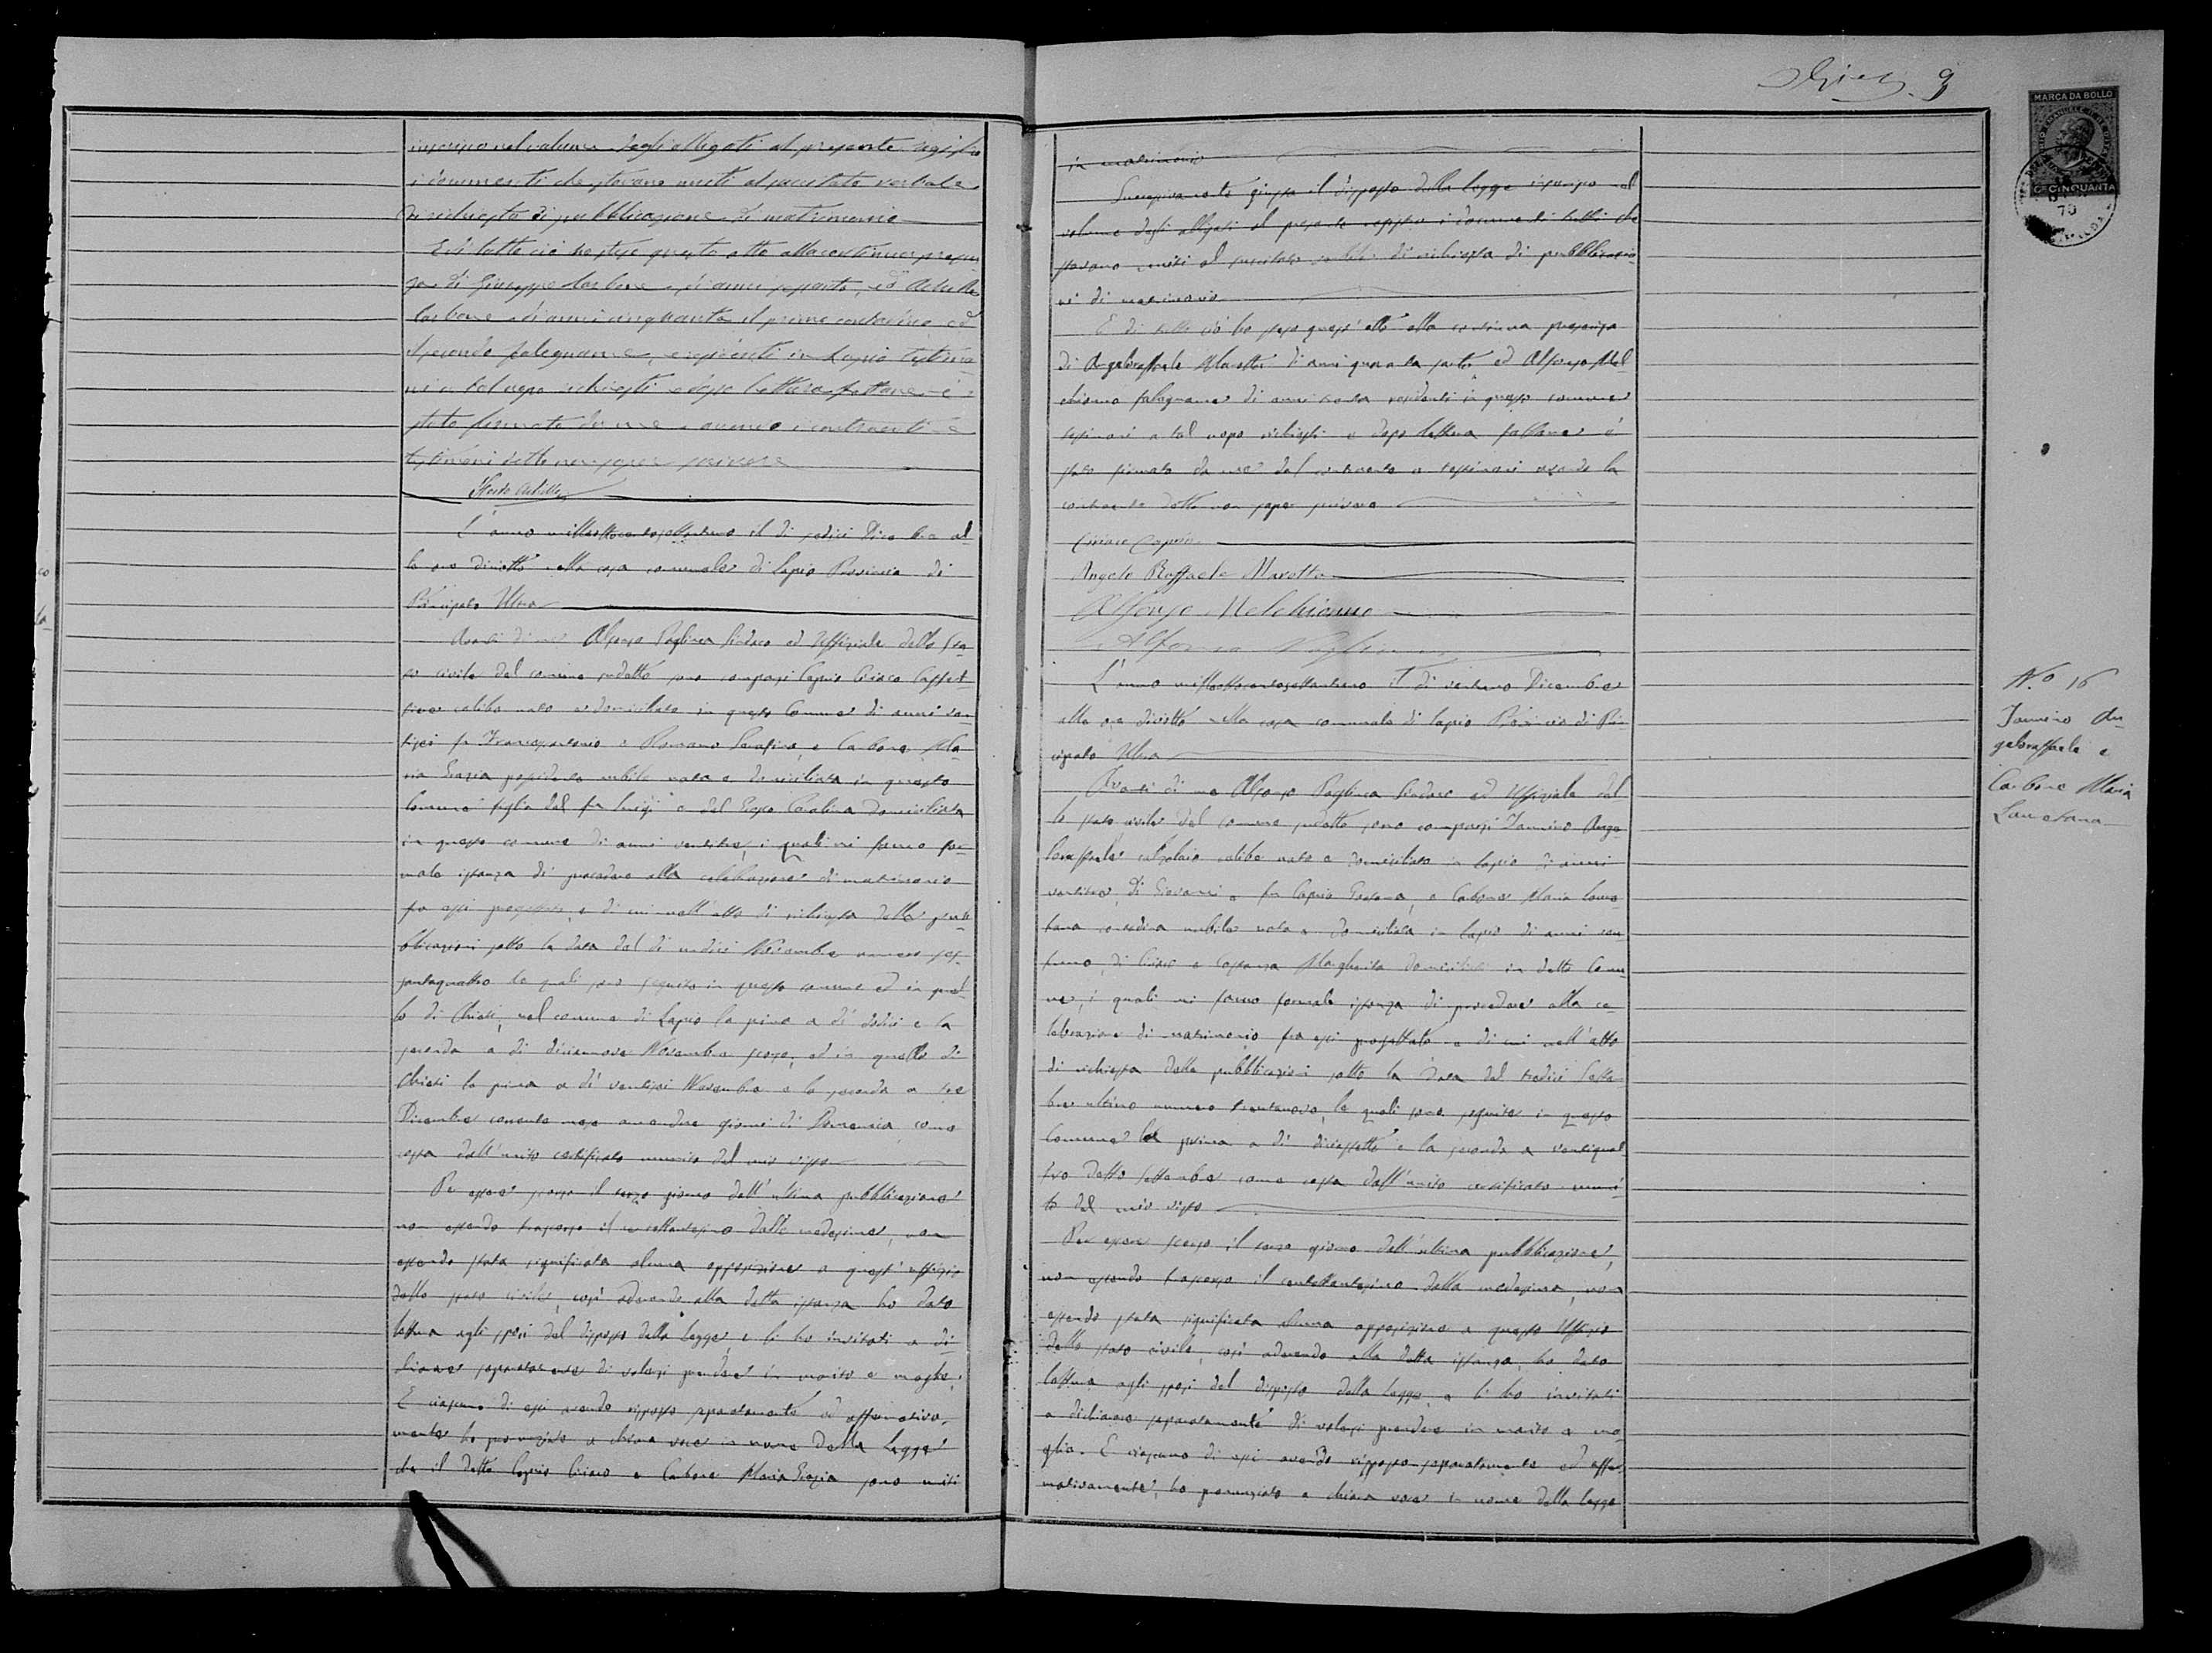 inserisco nel volume degli allegati al presente registro
i documenti che stavano uniti al succitato verbale
di richiesta di pubblicazione di matrimonio
E di tutto ciò ho steso questo atto alla continua presen
za di Giuseppe Carbone di anni sessanta, ed Achille
Carbone di anni cinquanta il primo contadino ed
il secondo falegname, residenti in Lapio testimo
ni a tal uopo richiesti e dopo lettura fattane è
stato firmato da me avendo i contraenti e
testimoni detto non saper scrivere
L'anno milleottocentosettantuno il dì sedici Dicembre al
le ore diciotto nella casa comunale di Lapio Provincia di
Principato Ultra
Avanti di me Alfonso Paglinca Sindaco ed Uffiziale dello Sta
to civile del comune sudetto sono comparsi Caprio Ciriaco
celibe nato e domiciliato in questo Comune di anni ven
tisei fu Francescantonio e Romano Serafina, e Carbone Ma
ria Grazia possidente nubile nata e domiciliata in questo
Comune figlia del fu Luigi e del Carolina domiciliata
in questo comune di anni ventitre, i quali mi fanno for
male istanza di procedere alla celebrazione di matrimonio
fra essi progettato, e di cui nell'atto di richiesta delle pub
blicazioni sotto la data del dì undici Novembre numero ses
santaquattro le quali sono seguite in questo comune ed in quel
lo di Chiusi, nel comune di Lapio la prima a dì dodici e la
seconda a dì diciannove Novembre scorso, ed in quello di
la prima a dì ventisei Novembre e la seconda a tre
Dicembre corrente mese amendue giorni di Domenica, come
costa dall'unito certificato munito del mio visto
Per essere scorso il terzo giorno dell'ultima pubblicazione
non essendo trascorso il centottantesimo dalle medesime, non
essendo stata significata alcuna opposizione a quest'uffizio
dello stato civile, così aderendo alla detta istanza ho dato
lettura agli sposi del disposto della legge, e li ho invitati a di
chiarare separatamente di volersi prendere in marito e moglie.
E ciascuno di essi avendo risposto separatamente ed affermativa
mente ho pronunziato a chiara voce in nome della Legge
che il detto Caprio Ciriaco e Carbone Maria Grazia sono uniti
9
MARCA DA BOLLO
CINQUANTA
in matrimonio
Successivamente giusta il disposto della legge inserisco nel
volume degli allegati al presente registro i documenti tutti che
stavano uniti al succitato verbale di richiesta di pubblicazio
ni di matrimonio
E di tutto ciò ho steso quest'atto alla continua presenza
di Angeloraffaele Marotta di anni quaranta sarto ed Alfonso Mel
chionno falegname di anni trenta residenti in questo comune
testimoni a tal uopo richiesti e dopo lettura fattane è
stato firmato da me dal contraente e testimoni avendo la
contraente detto non saper scrivere
Ciriaco Caprio
Angelo Raffaele Marotta
Alfonso Melchionno
Alfonso Paglinca
L'anno milleottocentosettantuno il dì ventuno Dicembre
alle ore diciotto nella casa comunale di Lapio Provincia di Prin
cipato Ultra
Avanti di me Alfonso Paglinca Sindaco ed Uffiziale del
lo stato civile del comune sudetto sono comparsi Iannino Ange
loraffaele calzolaio celibe nato e domiciliato in Lapio di anni
ventitre, di Giovanni e fu Caprio Gaetana, e Carbone Maria Laure
tana contadina nubile nata e domiciliata in Lapio di anni ven
tuno, di Ciriaco e Costanza Margherita domiciliati in detto Comu
ne, i quali mi fanno formale istanza di procedere alla ce
lebrazione di matrimonio fra essi progettato e di cui nell'atto
di richiesta delle pubblicazioni sotto la data del tredici Settem
bre ultimo numero trentanove, le quali sono seguite in questo
Comune la prima a dì diciassette e la seconda a ventiquat
tro detto Settembre come costa dall'unito certificato muni
to del mio visto
Per essere scorso il terzo giorno dell'ultima pubblicazione,
non essendo trascorso il centottantesimo dalla medesima, non
essendo stata significata alcuna opposizione a questo Uffizio
dello stato civile, così aderendo alla detta istanza, ho dato
lettura agli sposi del disposto della legge, e li ho invitati
a dichiarare separatamente di volersi prendere in marito e mo
glie. E ciascuno di essi avendo risposto separatamente ed affer
mativamente, ho pronunziato a chiara voce in nome della legge
N.º 16
Iannino An
geloraffaele e
Carbone Maria
Lauretana